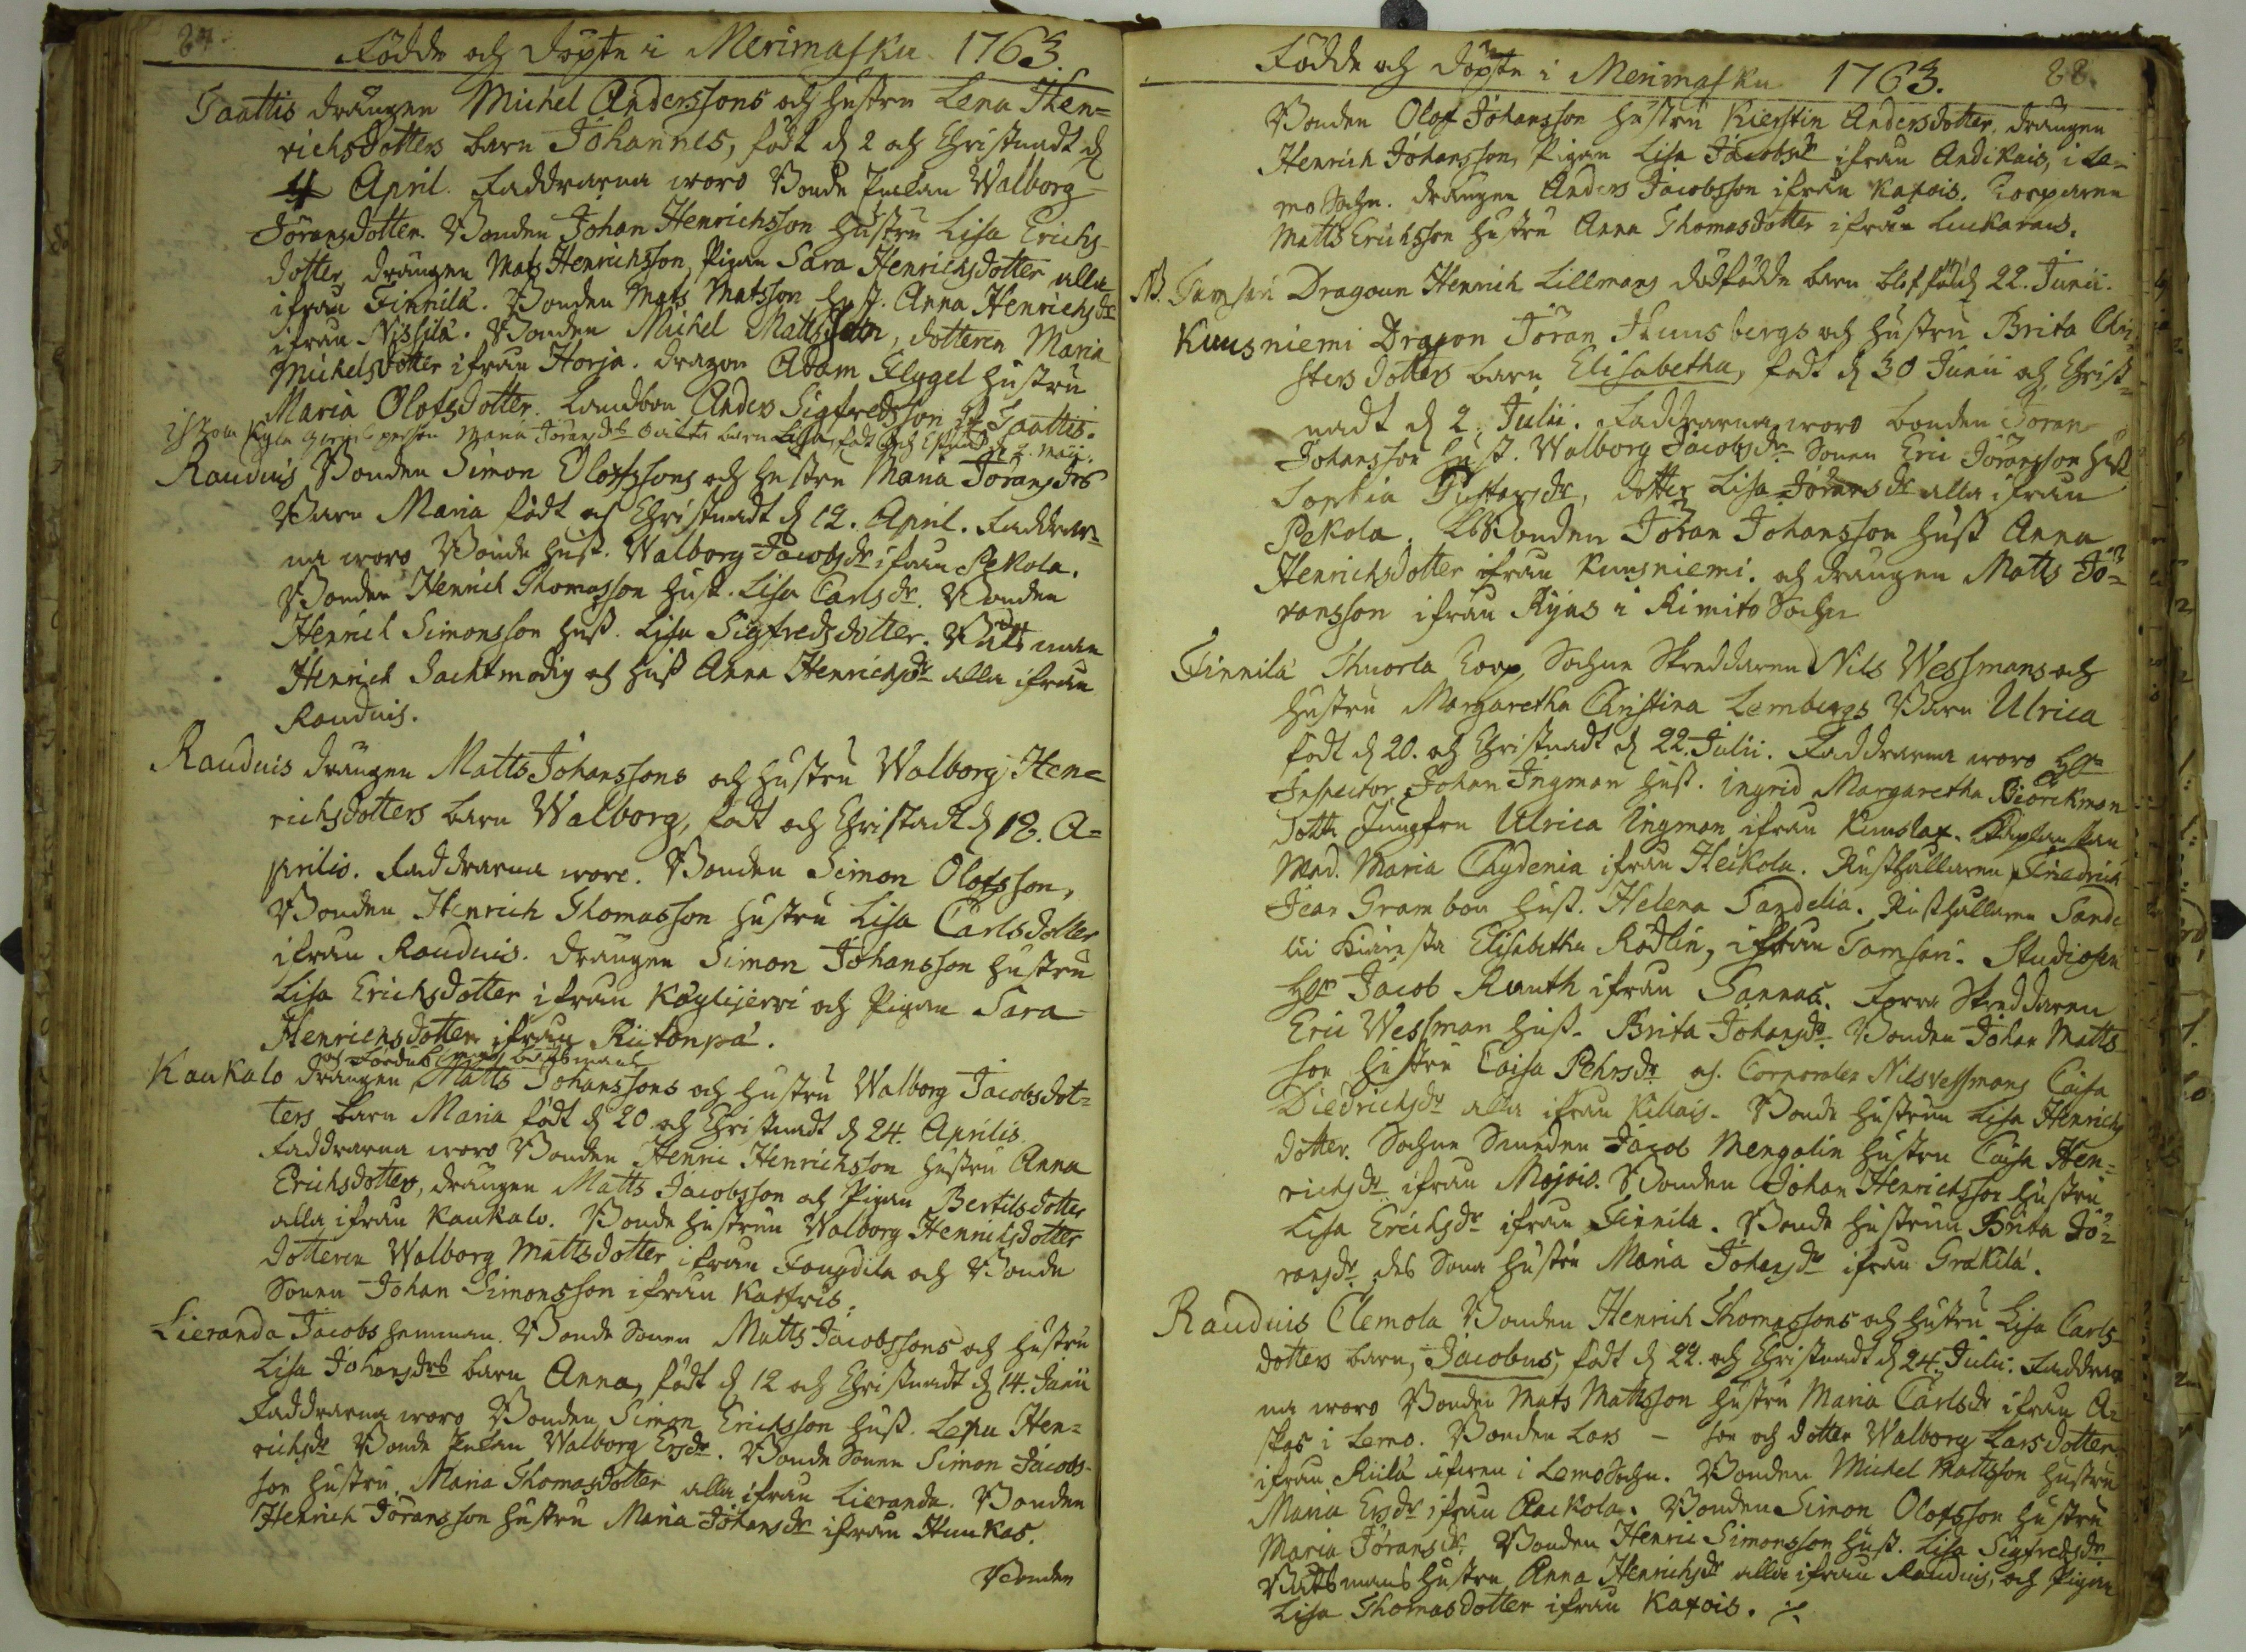 87.
Födde och döpte i Merimasku 1763.
Saattis drängen Michel Anderssons och hustru Lena Hen=
richsdotters barn Johannes, födt d 2 och Christnadt d
4 April. Faddrarna woro Bonde Enkan Walborg
Jöransdotter. Bonden Johan Henrichsson hustru Lisa Erichs-
dotter, drängen Mats Henrichsson, Pigan Sara Henrichsdotter alla
ifrån Finnilä. Bonden Mats Matsson hust. Anna Henrichsdr
ifrån Nissilä. Bonden Michel Mattsson, dotteren Maria
Michelsdotter ifrån Horja. Dragon Adam Flygel hustru
Maria Olofsdotter. Landbon Anders Sigfredsson if. Saattis.
person Maria Jöransdrs oäkta barn Lisa, födt d. 2. Maii.
Rauduis Bonden Simon Olofssons och hustru Maria Joransdrs
Barn Maria födt och Christnadt d 12. April. Faddrar=
na woro Bonde hust. Walborg Jacobsdr ifrån Pekola.
Bonden Henrich Thomasson hust. Lisa Carlsdr. Bonden
Henrich Simonsson hust. Lisa Sigfredsdotter. Båtsman
Henrich Sachtmodig och hust Anna Henrichsdr alla ifrån
Rauduis.
Rauduis drängen Matts Johanssons och hustru Walborg Hen=
richsdotters barn Walborg, födt och Christnadt d 18. A=
prilis. Faddrarna woro. Bonden Simon Olofsson,
Bonden Henrich Thomasson hustru Lisa Carlsdotter
ifrån Rauduis. Drängen Simon Johansson hustru
Lisa Erichsdotter ifrån Köylijerwi och Pigan Sara
Henrichsdotter ifrån Riitonpä.
båtsmans
Kaukalo drängen Matts Johanssons och hustru Walborg Jacobsdot=
ters barn Maria födt d 20. och Christnadt d 24. Aprilis
Faddrarna woro Bonden Henric Henrichsson hustru Anna
Erichsdotter, drängen Matts Jacobsson och Pigan Bertilsdotter
alla ifrån Kaukalo. Bonde hustrun Walborg Henrichsdotter
dotteren Walborg Mattsdotter ifrån Fougdila och Bonde
Sonen Johan Simonsson ifrån Kaifris.
Lieranda Jacobs hemman. Bonde Sonen Matts Jacobssons och hustru
Lisa Johansdrs barn Anna, födt d 12 och Christnadt d 14. Junii
Faddrarna woro Bonden Simon Erichsson hust. Lena Hen=
richsdr Bonde Enkan Walborg Ersdr. Bonde Sonen Simon Jacobs-
son hustru Maria Thomasdotter alla ifrån Lieranda. Bonden
Henrich Joransson hustru Maria Johansdr ifrån Hunkas.
Bonden
Födde och döpte i Merimasku 1763. 88.
Bonden Olof Johansson hustru Kierstin Andersdotter, drängen
Henrich Johansson, Pigan Lisa Jacobsdr ifrån Andikais, i Le-
mo Sochn. drängen Anders Jacobsson ifrån Kaxois. Corparen
Matts Erichsson hustru Anna Thomasdotter ifrån Luckarans.
NB. Tamsari Dragoun Henrich Lillmans dödfödde barn blef föd d 22. Junii.
Kuusniemi Dragon Jöran Thunsbergs och hustru Brita Chri-
stersdotters barn Elisabetha, födt d 30 Junii och Christ-
nadt d 2. Julii. Faddrarna woro bonden Jöran
Johansson hust. Walborg Jacobsdr Sonen Eric Jöransson hust
Sophia Gustavsdr, dotter Lisa Jöransdr alla ifrån
Pekola. Bonden Jöran Johansson hust Anna
Henrichsdotter ifrån Kuusniemi. och drängen Matts Jö-
ransson ifrån Ryas i Kimito Sochn
Finnilä Thuorla Torp, Sochne Skreddaren Nils Wessmans och
hustru Margaretha Christina Lembergs Barn Ulrica
födt d 20. och Christnadt d 22. Julii. Faddrarna woro Hr
Inspector Johan Ingman hust. Ingrid Margaretha Biörckman
Dottr Jungfru Ulrica Ingman ifrån Kuuslax. Caplanskan
Mad. Maria Chydenia ifrån Heikola. Rusthållaren Friedrich
Jean Grambou hust. Helena Sandelia. Rusthållaren Sande
lii Elisabetha Rödlin, ifrån Tamsari. Studiosen
Hr Jacob Ruuth ifrån Sannas. Forra Skreddaren
Eric Wessman hust. Brita Johansdr. Bonden Johan Matts-
son hustru Caisa Pehrsdr och. Corporalen Nils Wessmans Caisa
Diedrichsdr alla ifrån Killais. Bonde hustrun Lisa Henrichs
dotter. Sochne Smeden Jacob Mengalin hustru Caisa Hen=
richsdr ifrån Mojois. Bonden Johan Henrichsson hustru
Lisa Erichsdr ifrån Finnila. Bonde hustrun Brita Jö-
ransdr des Sons hustru Maria Johansdr ifrån Grakilä.
Rauduis Clemola Bonden Henrich Thomassons och hustru Lisa Carls-
dotters barn, Jacobus, födt d 22. och Christnadt d 24. Julii. Faddrar
na woro Bonden Mats Matsson hustru Maria Carlsdr ifrån A-
skas i Lemo. Bonden Lars - son och dotter Walborg Larsdotter
ifrån Riilä i Lemo Sochn. Bonden Michel Mattsson hustru
Maria Ersdr ifrån Rackola. Bonden Simon Olofsson hustru
Maria Jöransdr. Bonden Henric Simonsson hust. Lisa Sigfredsdr
Båtsmans hustru Anna Henrichsdr alla ifrån Rauduis, och Pigan
Lisa Thomasdotter ifrån Kaxois.